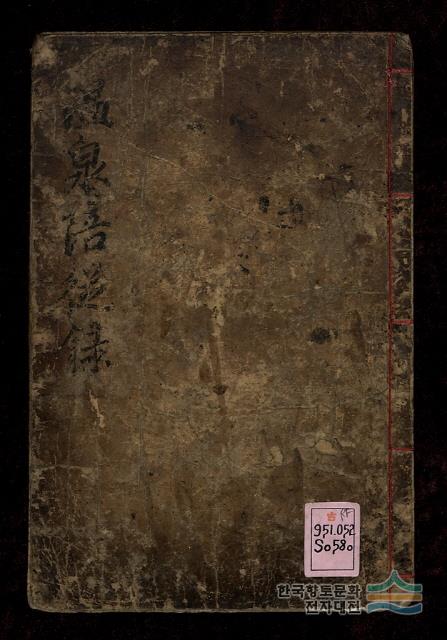 溫泉陪從錄
古
951.052
So58o
한국향토문화
전자대전